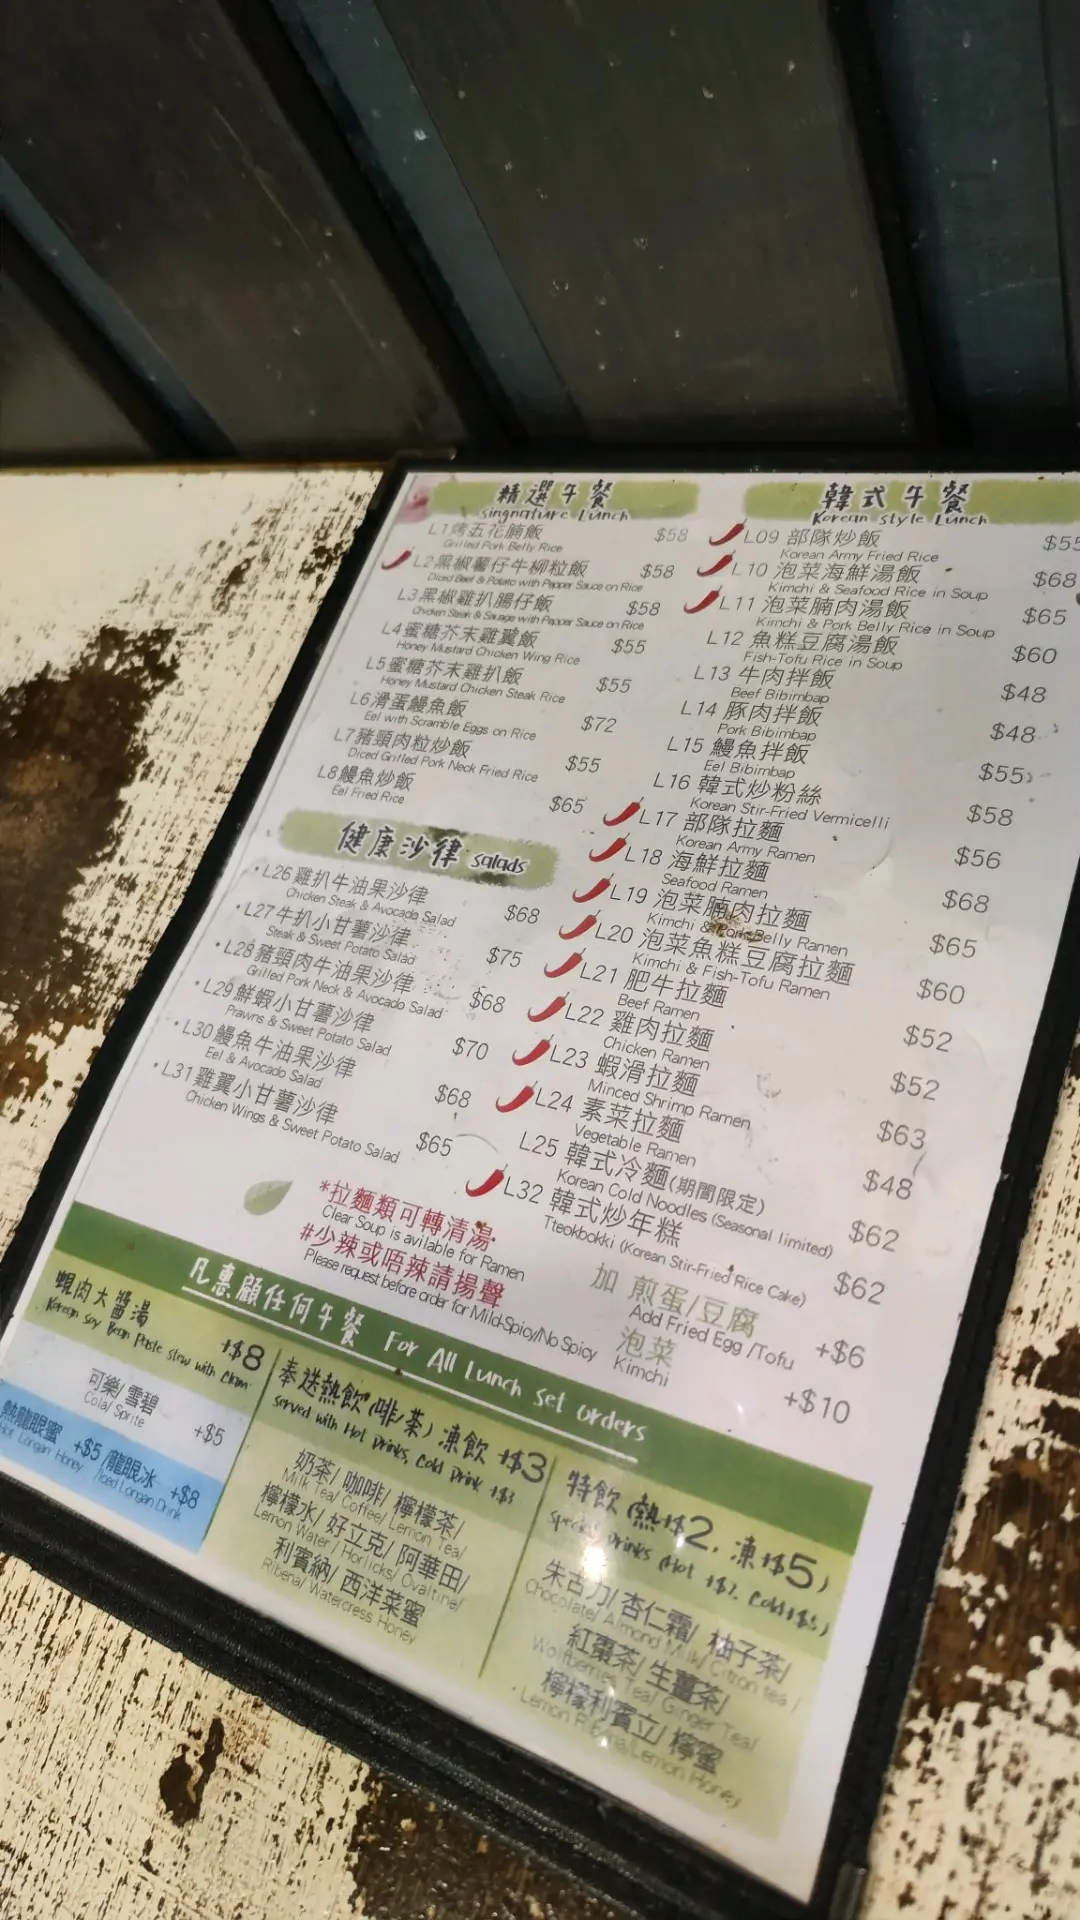 精選午餐
singnature Lunch
L1烤五花腩飯 $58
Grilled Pork Belly Rice
L2黑椒薯仔牛柳粒飯 $58
Diced Beef & Potato with Pepper Sauce on Rice
L3黑椒雞扒腸仔飯 $58
Chicken Steak & Sausage with Pepper Sauce on Rice
L4蜜糖芥末雞翼飯 $55
Honey Mustard Chicken Wing Rice
L5蜜糖芥末雞扒飯 $55
Honey Mustard Chicken Steak Rice
L6滑蛋鰻魚飯 $72
Eel with Scramble Eggs on Rice
L7豬頸肉粒炒飯 $55
Diced Grilled Pork Neck Fried Rice
L8鰻魚炒飯 $65
Eel Fried Rice
健康沙律 salads
L26雞扒牛油果沙律 $68
Chicken Steak & Avocado Salad
L27牛扒小甘薯沙律 $75
Steak & Sweet Potato Salad
L28豬頸肉牛油果沙律 $68
Grilled Pork Neck & Avocado Salad
L29鮮蝦小甘薯沙律 $70
Prawns & Sweet Potato Salad
L30鰻魚牛油果沙律 $68
Eel & Avocado Salad
L31雞翼小甘薯沙律 $65
Chicken Wings & Sweet Potato Salad
韓式午餐
Korean style Lunch
L09 部隊炒飯 $55
Korean Army Fried Rice
L10 泡菜海鮮湯飯 $68
Kimchi & Seafood Rice in Soup
L11 泡菜腩肉湯飯 $65
Kimchi & Pork Belly Rice in Soup
L12 魚糕豆腐湯飯 $60
Fish-Tofu Rice in Soup
L13 牛肉拌飯 $48
Beef Bibimbap
L14 豚肉拌飯 $48
Pork Bibimbap
L15 鰻魚拌飯 $55
Eel Bibimbap
L16 韓式炒粉絲 $58
Korean Stir-Fried Vermicelli
L17 部隊拉麵 $56
Korean Army Ramen
L18 海鮮拉麵 $68
Seafood Ramen
L19 泡菜腩肉拉麵 $65
Kimchi & Pork Belly Ramen
L20 泡菜魚糕豆腐拉麵 $60
Kimchi & Fish-Tofu Ramen
L21 肥牛拉麵 $52
Beef Ramen
L22 雞肉拉麵 $52
Chicken Ramen
L23 蝦滑拉麵 $63
Minced Shrimp Ramen
L24 素菜拉麵 $48
Vegetable Ramen
L25 韓式冷麵(期間限定) $62
Korean Cold Noodles (Seasonal limited)
L32 韓式炒年糕 $62
Tteokbokki (Korean Stir-Fried Rice Cake)
加 煎蛋/豆腐 +$6
Add Fried Egg /Tofu
泡菜 +$10
Kimchi
*拉麵類可轉清湯
Clear Soup is avilable for Ramen
#少辣或唔辣請揚聲
Please request before order for Mild-Spicy/No Spicy
凡惠顧任何午餐 For All Lunch set orders
蜆肉大醬湯 +$8
Korean soy Bean Paste stew with Clam
可樂/雪碧 +$5
Cola/ Sprite
熱龍眼蜜 +$5 /龍眼冰 +$8
Hot Longan Honey /Iced Longan Drink
奉送熱飲(啡/茶) 凍飲 +$3
served with Hot Drinks, Cold Drink +$3
奶茶/ 咖啡/ 檸檬茶/
Milk Tea/ Coffee/ Lemon Tea/
檸檬水/ 好立克/ 阿華田/
Lemon Water/ Horlicks/ Ovaltine/
利賓納/ 西洋菜蜜
Ribena/ Watercress Honey
特飲 (熱+$2, 凍+$5)
Special Drinks (Hot +$2, Cold+$5)
朱古力/ 杏仁霜/ 柚子茶/
Chocolate/ Almond Milk/ Citron tea /
紅棗茶/ 生薑茶/
Wolfberries Tea/ Ginger Tea/
檸檬利賓立/ 檸蜜
Lemon Ribena/Lemon Honey